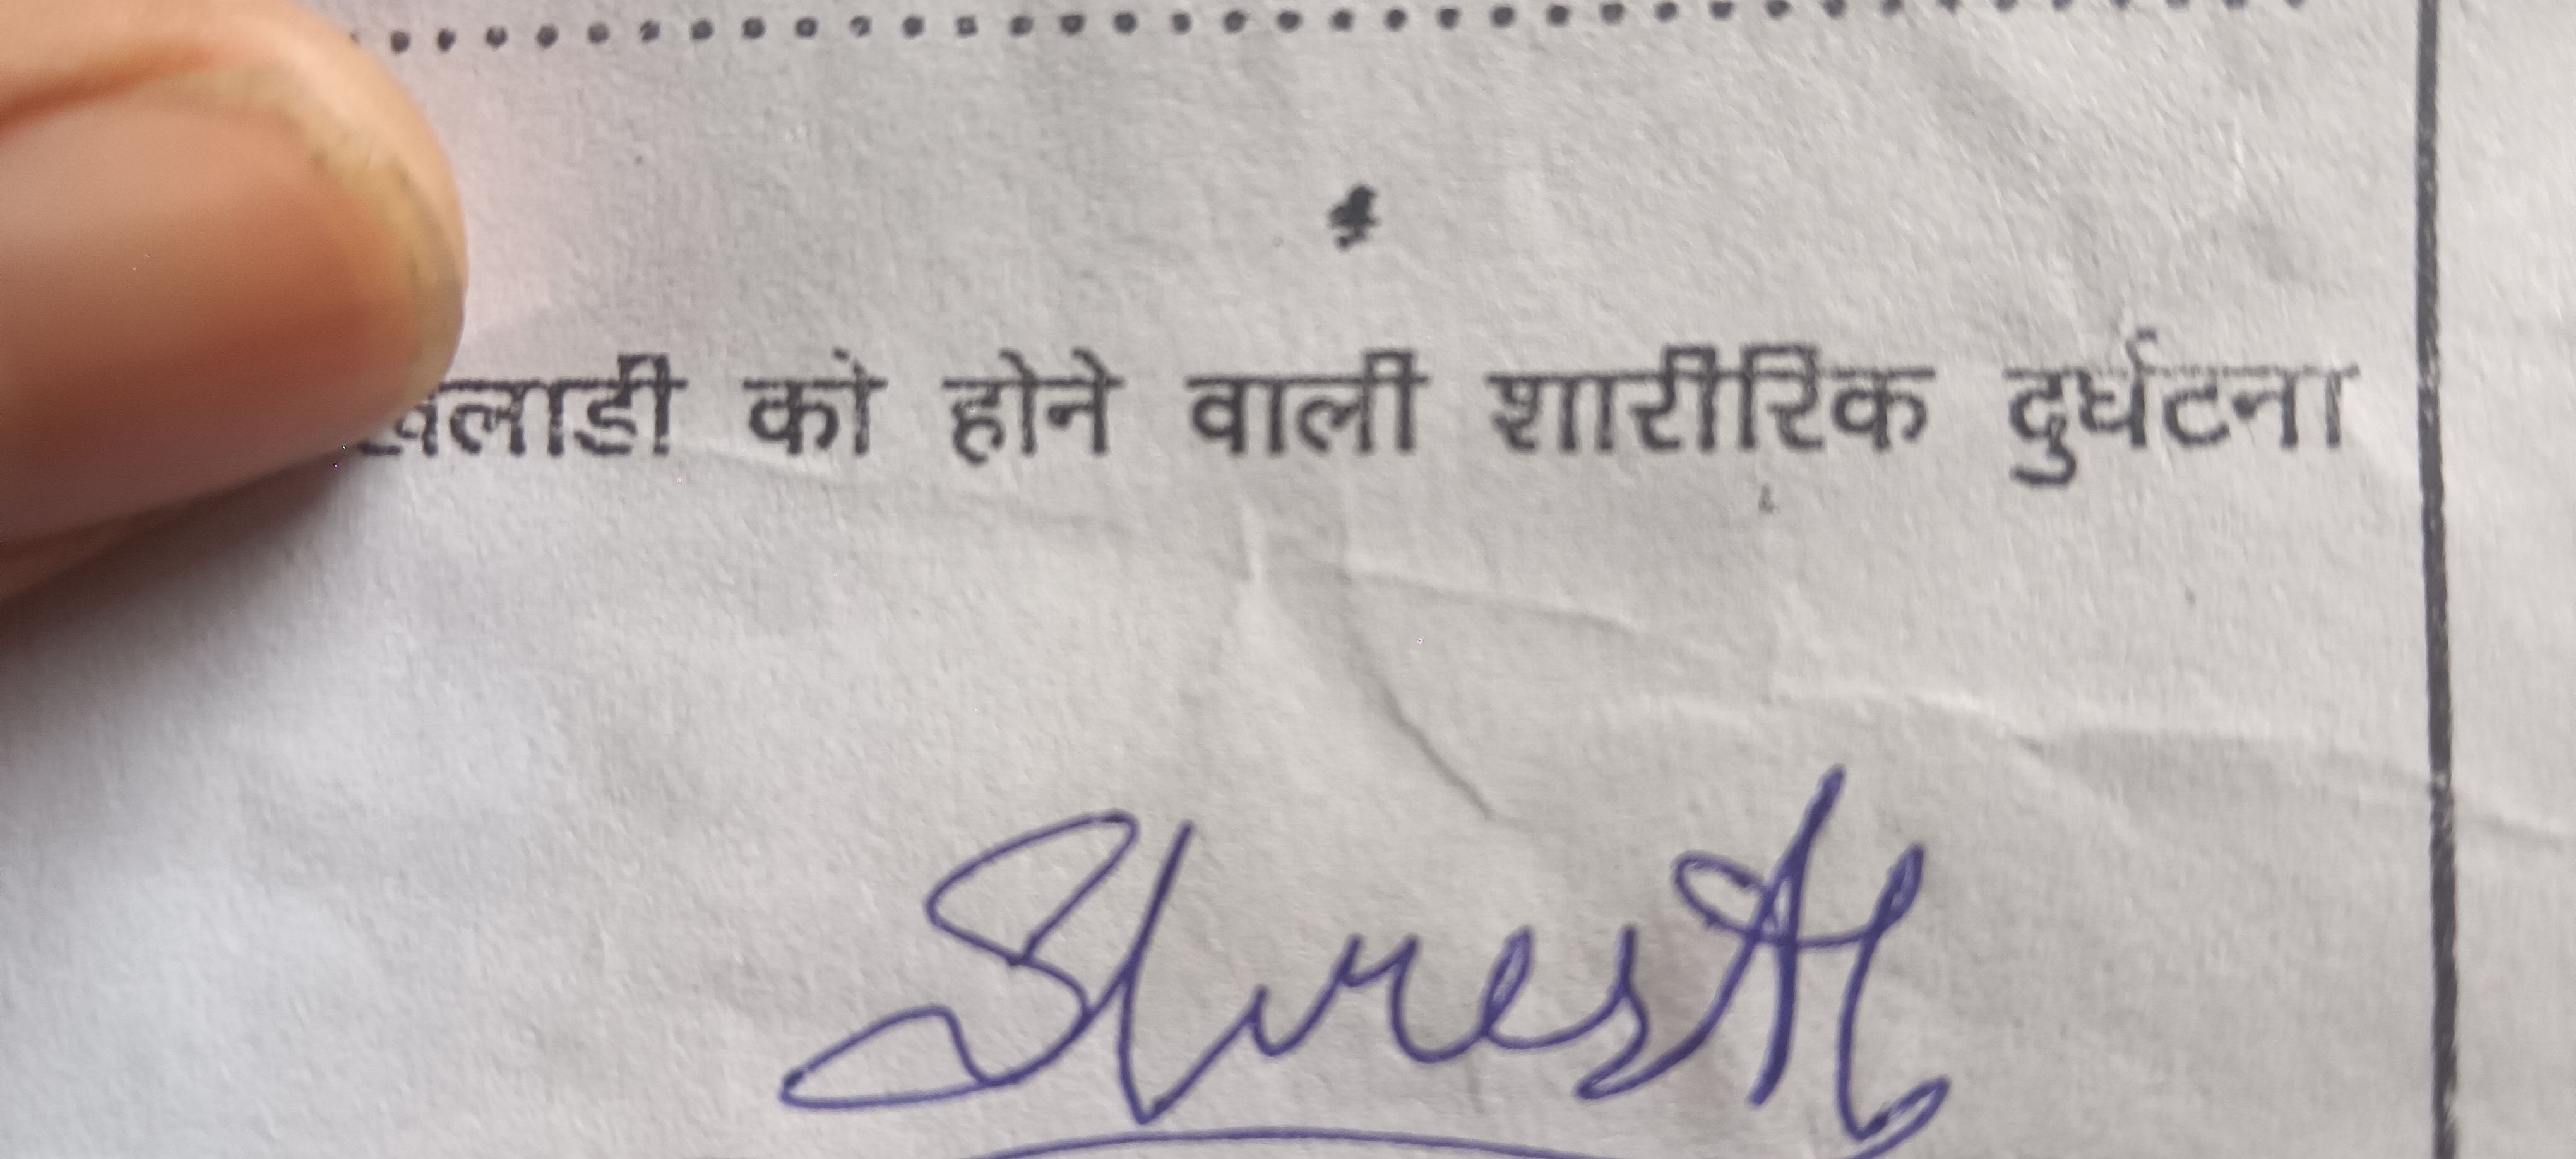 खिलाडी को होने वाली शारीरिक दुर्घटना
Shresth